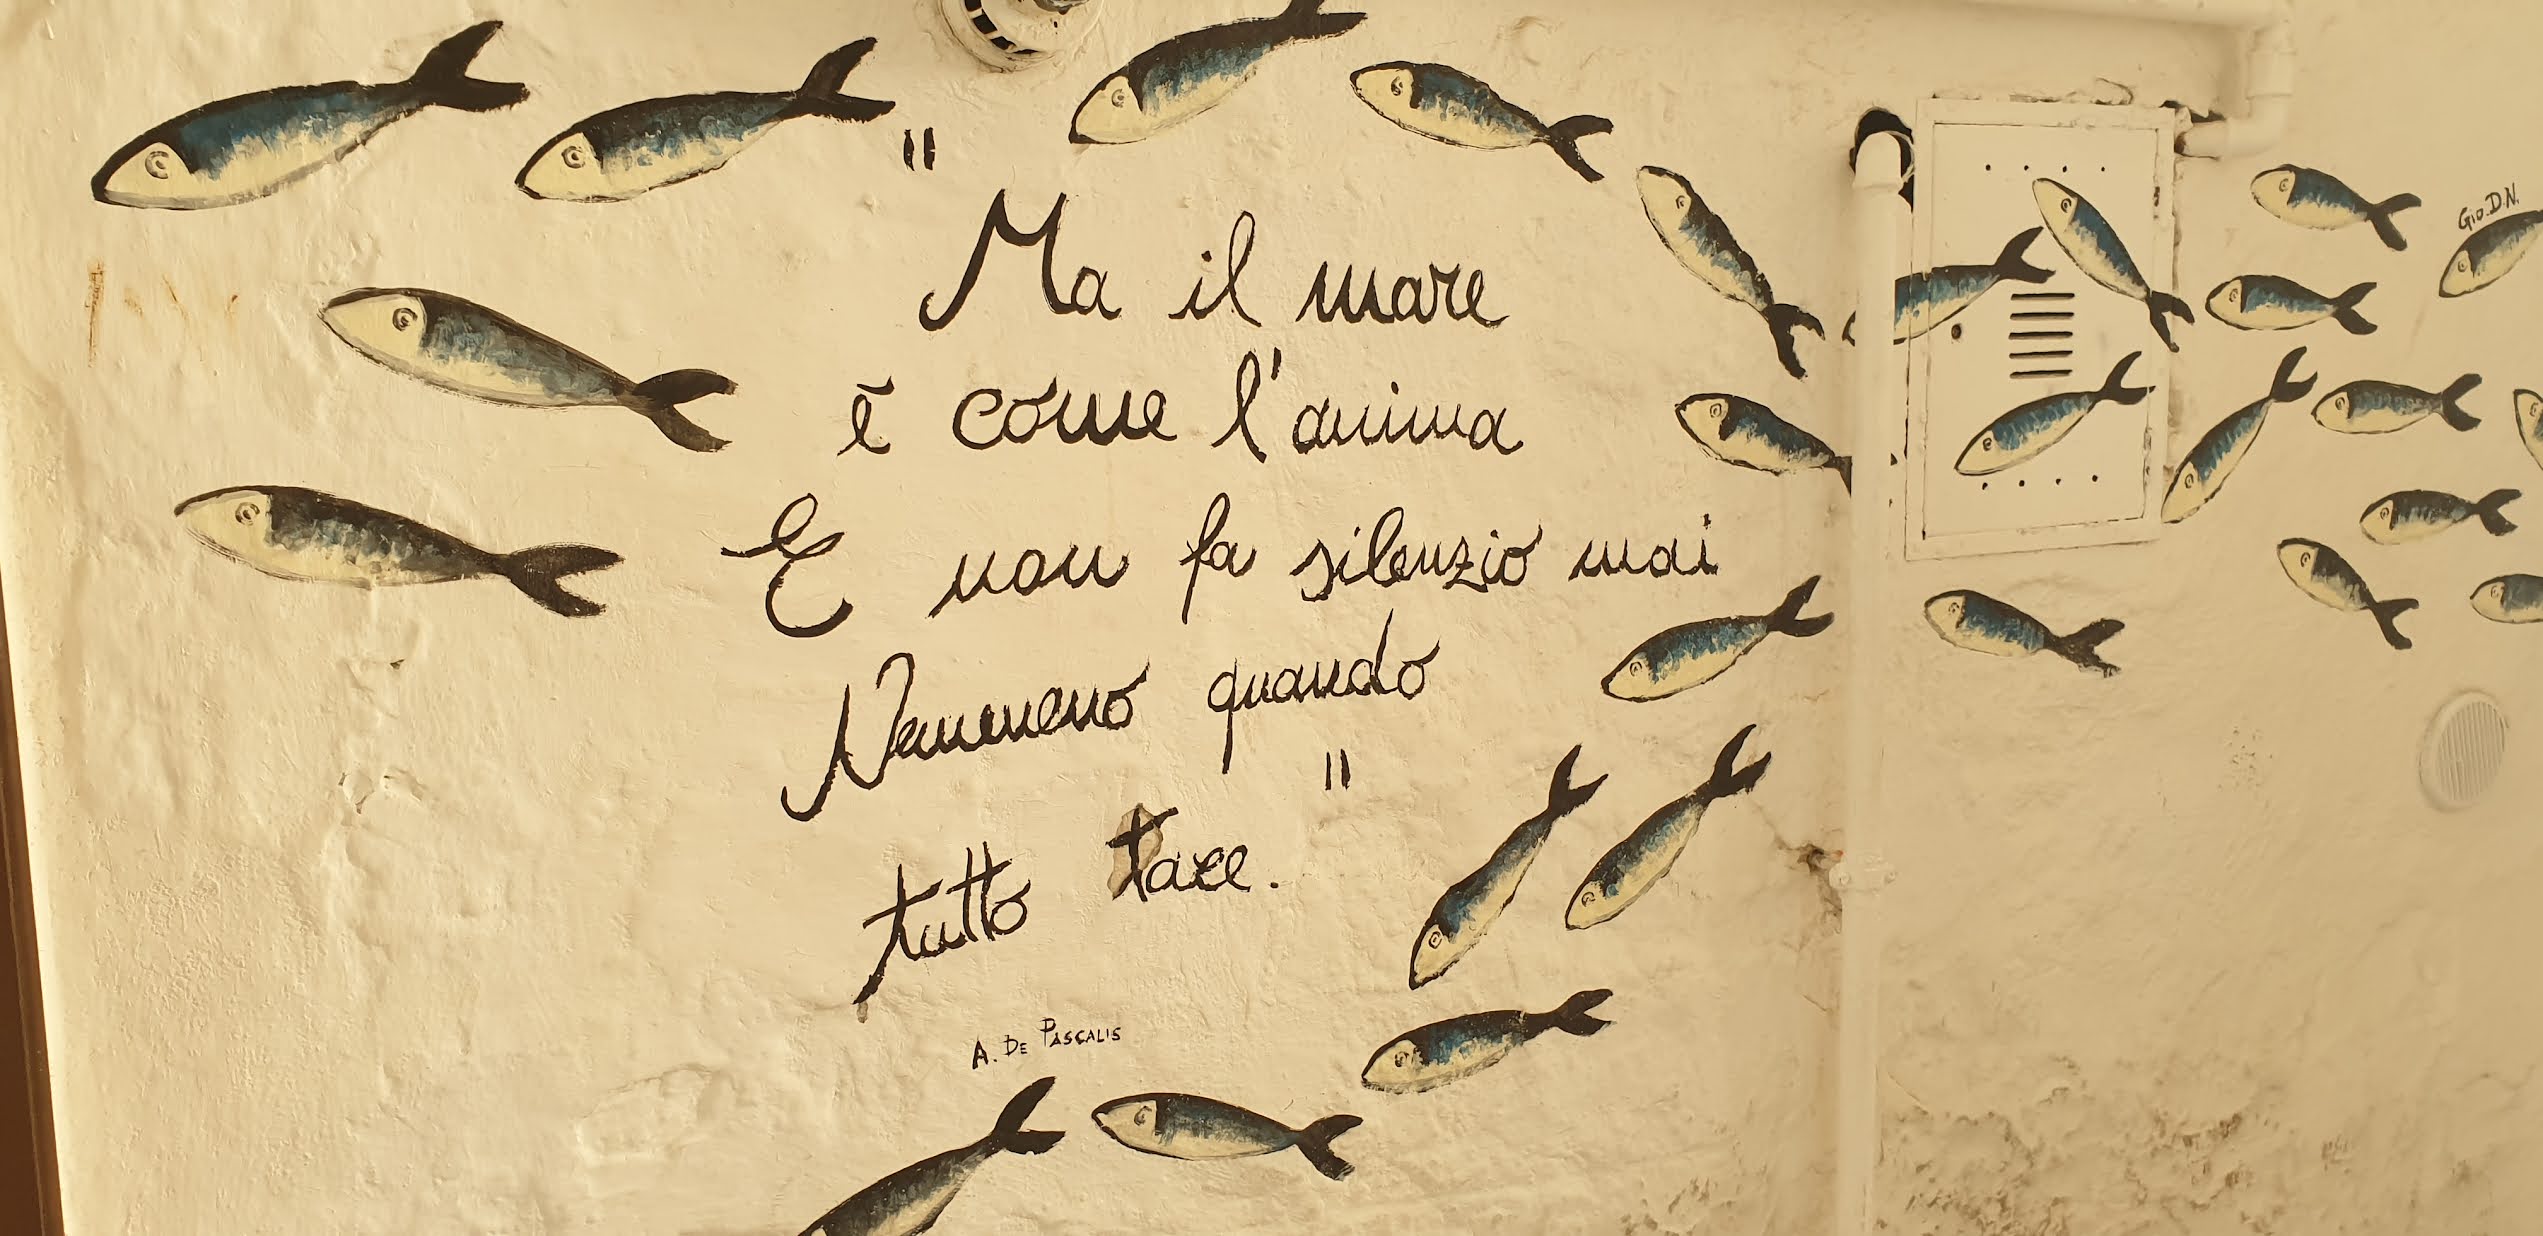 "Ma il mare
è come l'anima
E non fa silenzio mai
Nemmeno quando
tutto tace."
A. De Pascalis
Gio.D.N.